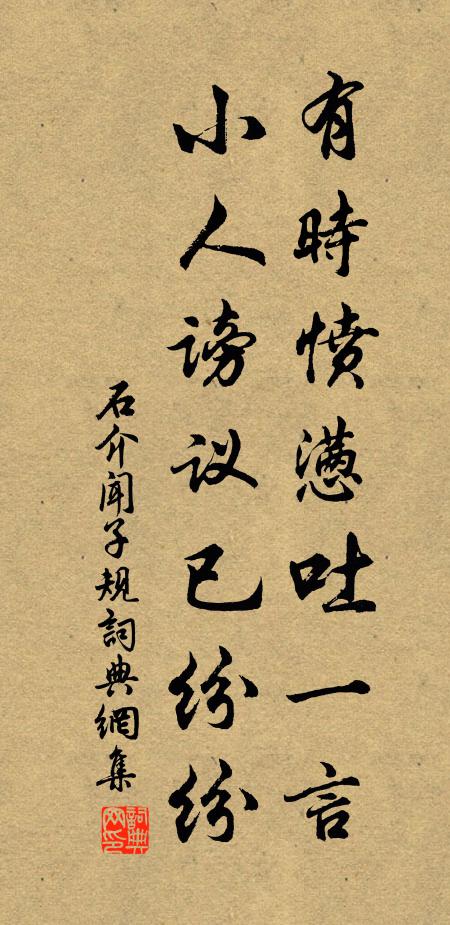 有時憤懑吐一言
小人謗议已纷纷
石介闻子规詞典網集
詞典网印